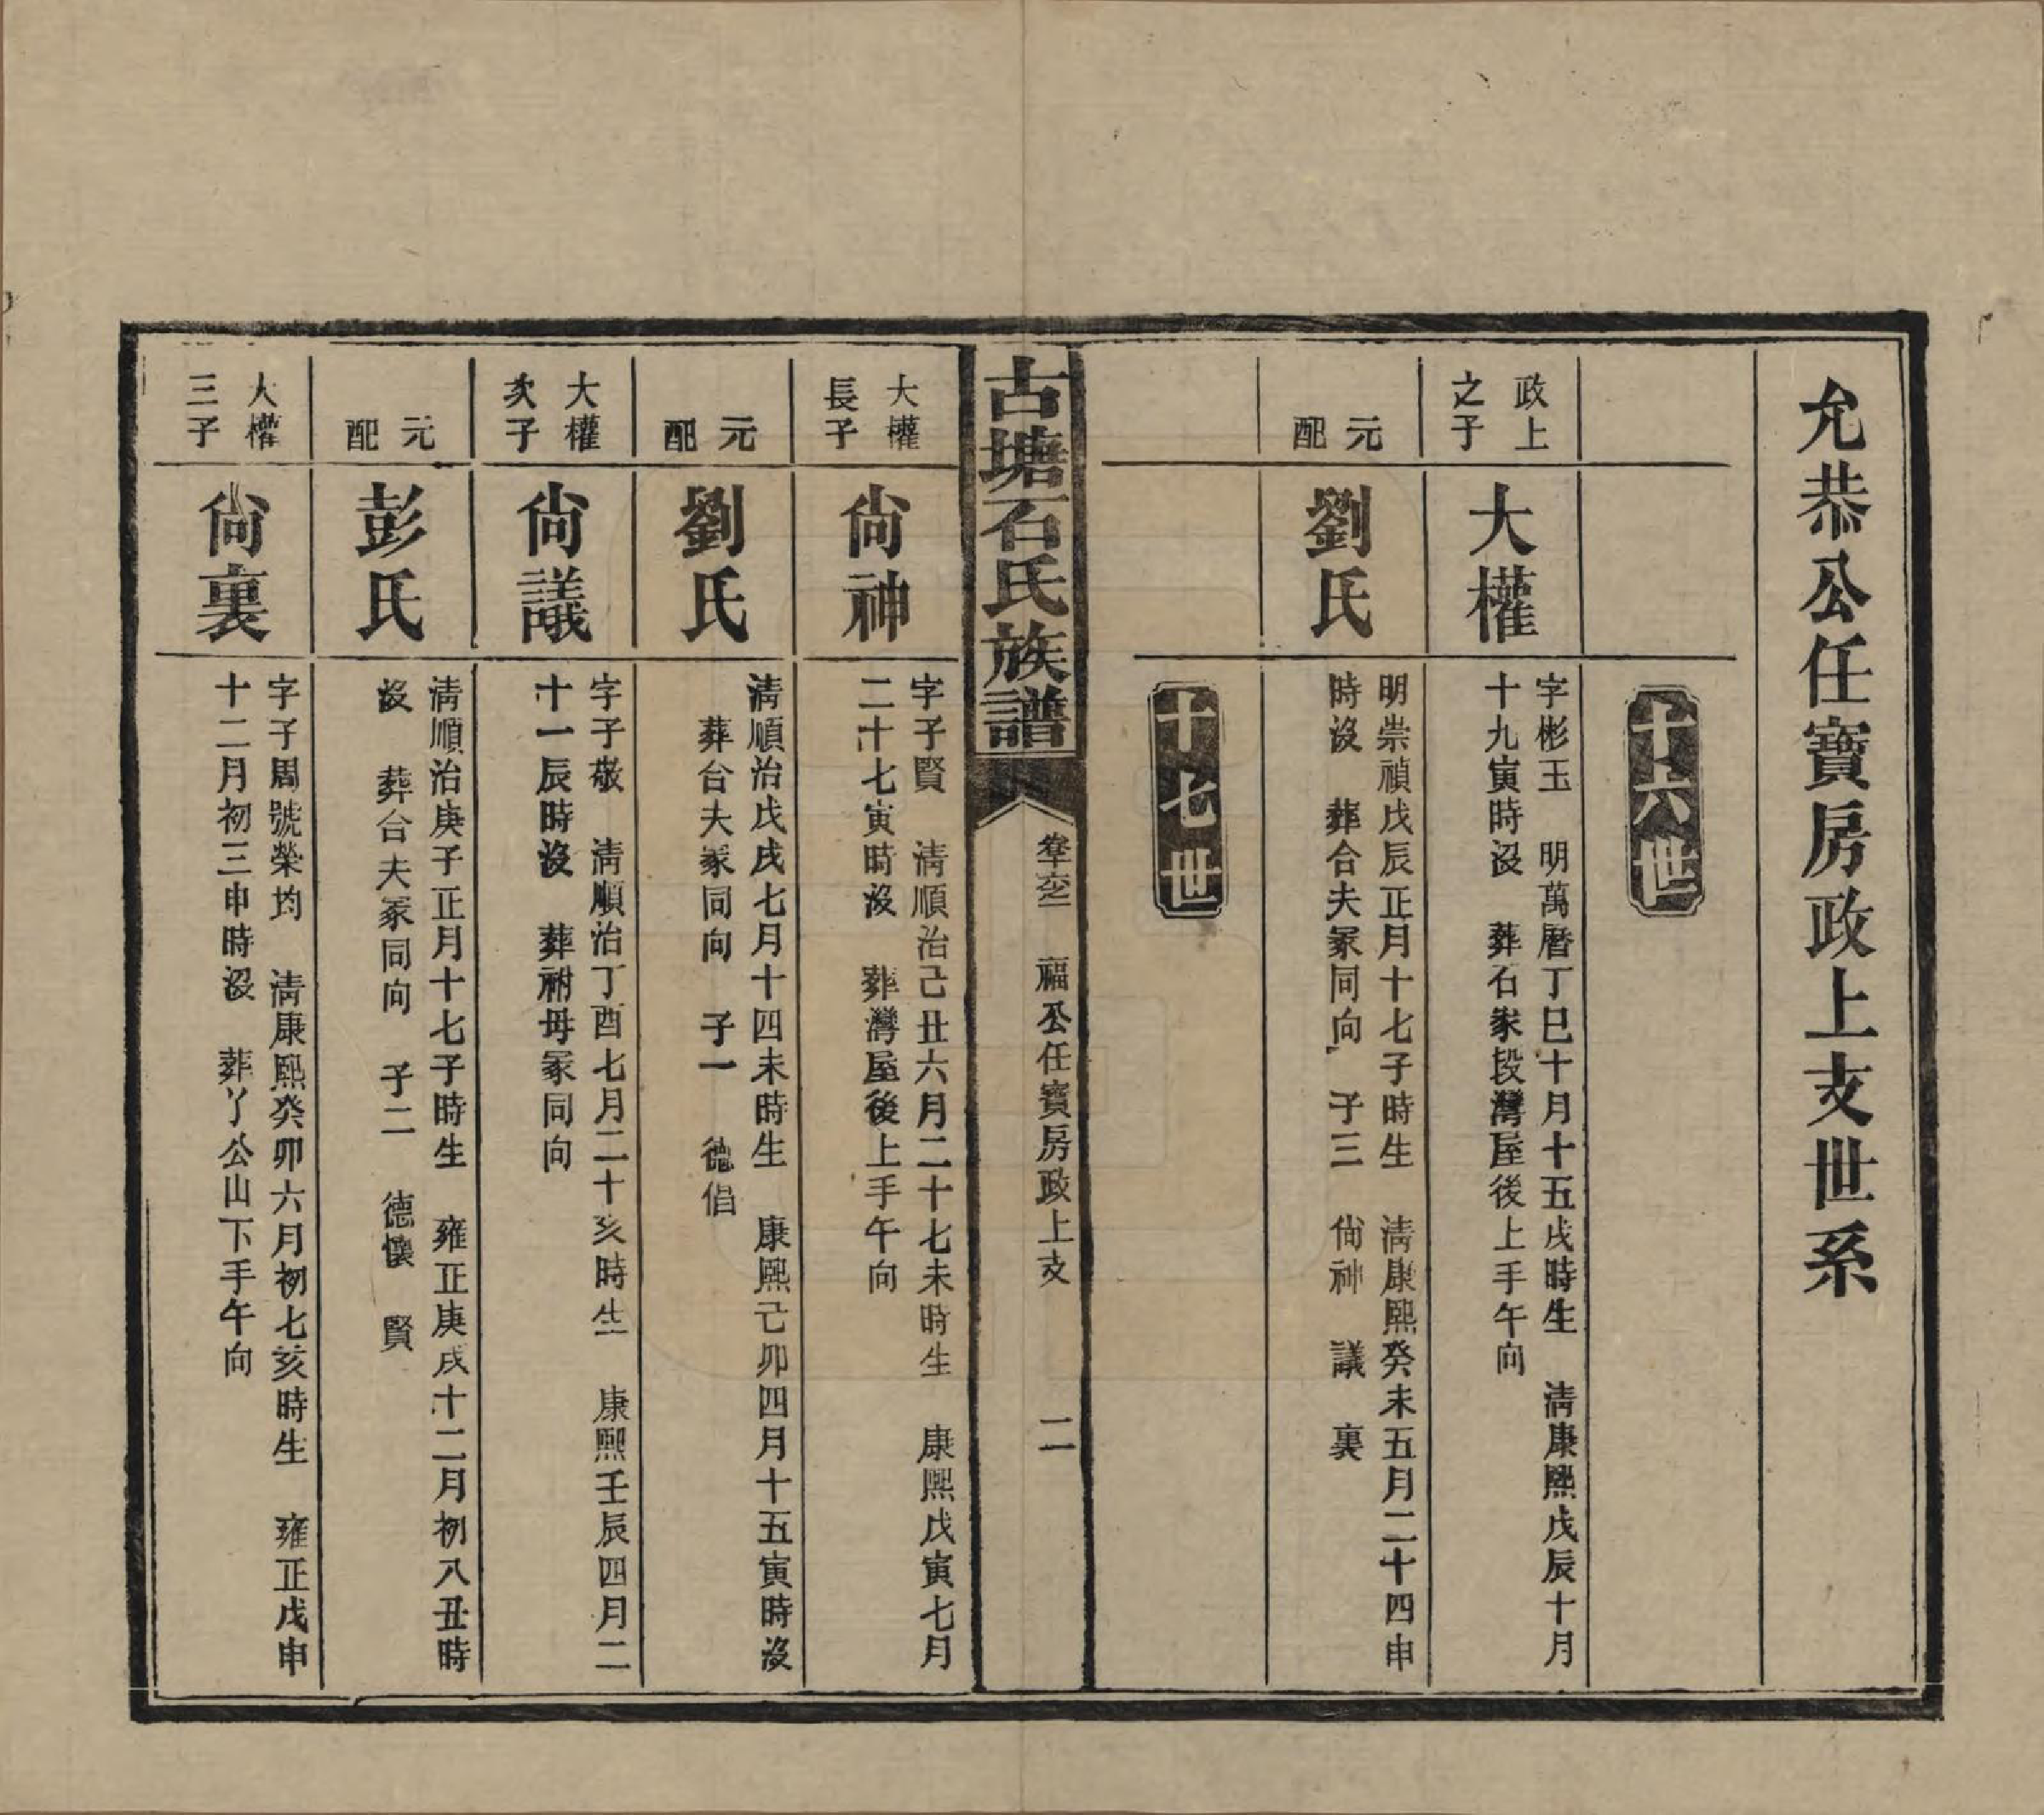 允恭公任寶房政上支世系
十六世
政上
之子
大權
字彬玉　明萬曆丁巳十月十五戌時生　清康熙戊辰十月
十九寅時沒　葬石家段灣屋後上手午向
元
配
劉氏
明崇禎戊辰正月十七子時生　清康熙癸未五月二十四申
時沒　葬合夫冢同向　子三　尙神　議　裏
十七世
古塘石氏族譜
福公任寶房政上支
二
大權
長子
尙神
字子賢　清順治己丑六月二十七未時生　康熙戊寅七月
二十七寅時沒　葬灣屋後上手午向
元
配
劉氏
清順治戊戌七月十四未時生　康熙己卯四月十五寅時沒
葬合夫冢同向　子一　德倡
大權
次子
尙議
字子敬　清順治丁酉七月二十亥時生　康熙壬辰四月二
十一辰時沒　葬祔母冢同向
元
配
彭氏
清順治庚子正月十七子時生　雍正庚戌十二月初八丑時
沒　葬合夫冢同向　子二　德懷　賢
大權
三子
尙裏
字子周號榮均　清康熙癸卯六月初七亥時生　雍正戊申
十二月初三申時沒　葬丫公山下手午向